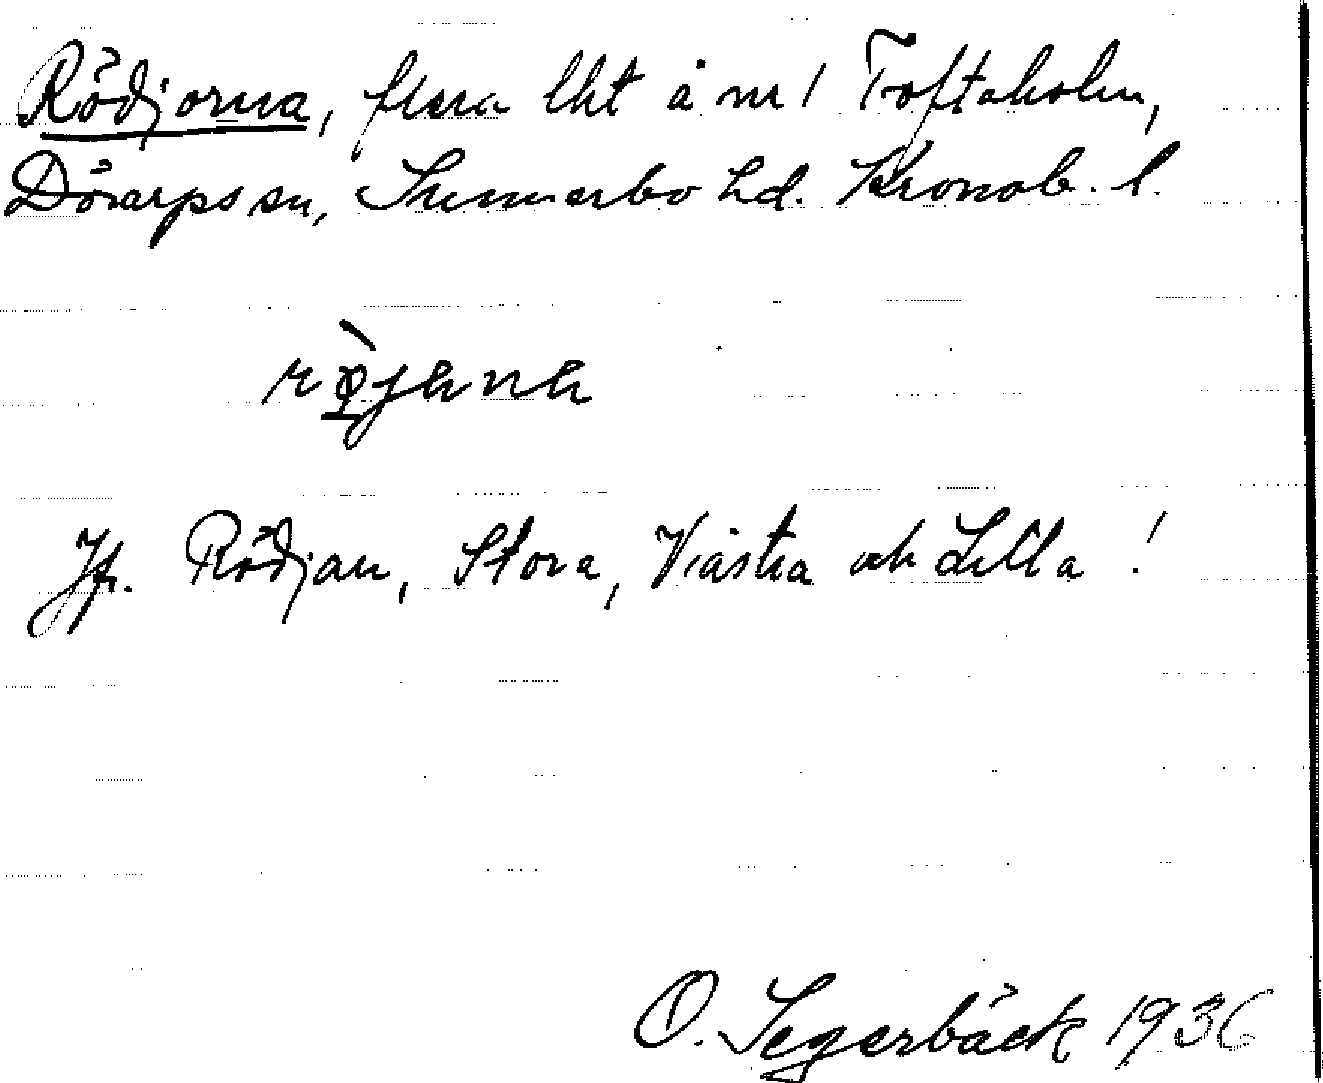 Rödjorna, flera lht å nr 1 Toftaholm,
Dörarps sn, Sunnerbo hd. Kronob. l.
rø̀jana
Jfr. Rödjan, Stora, Västra och Lilla !
O. Segerbäck 1936